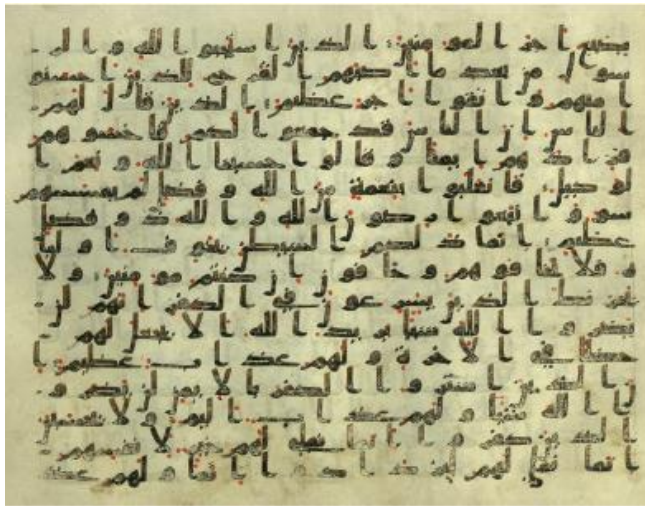 يضيع اجر المومنين الذين استجبوا لله والر
سول من بعد ما اصبهم القرح للذين احسنو
ا منهم واتقوا اجر عظيم الذين قال لهم
الناس ان الناس قد جمعوا لكم فاخشوهم
فزادهم ايمنا وقالوا حسبنا الله ونعم ا
لوكيل فانقلبوا بنعمة من الله وفضل لم يمسسهم
سو واتبعوا رضون الله والله ذو فضل
عظيم انما ذلكم الشيطن يخوف اوليا
ه فلا تخافوهم وخافون ان كنتم مومنين ولا
يحزنك الذين يسرعون في الكفر انهم لن
يضروا الله شيا يريد الله الا يجعل لهم
حظا في الاخرة ولهم عذاب عظيم ا
ن الذين اشتروا الكفر بالايمن لن يضرو
ا الله شيا ولهم عذاب اليم ولا يحسبن
الذين كفروا انما نملي لهم خير لانفسهم
انما نملي لهم ليزدادوا اثما ولهم عذ